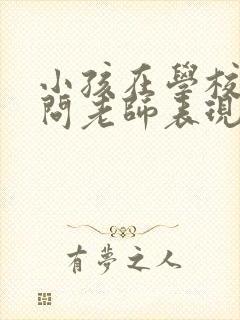 小孩在學校
問老師表現
有夢之人